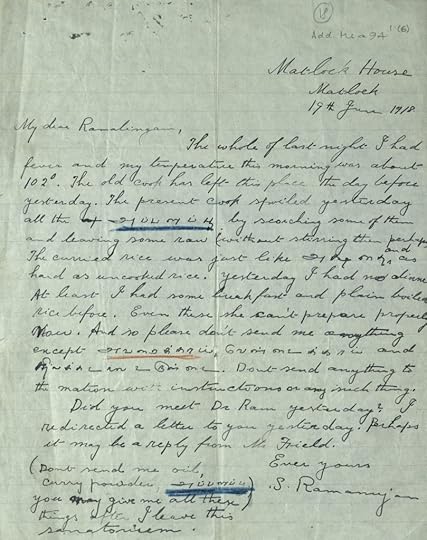 18
Add. Ms a 94 1 (6)
Matlock House
Matlock
19th June 1918
My dear Ramalingam,
The whole of last night I had
fever and my temperature this morning was about
102°. The old cook has left this place the day before
yesterday. The present cook spoiled yesterday
all the by scorching some of them
and leaving some raw (without stirring them perhaps).
The curried rice was just like as
hard as uncooked rice. Yesterday I had no dinner.
At least I had some breakfast and plain boiled
rice before. Even these she can't prepare properly
now. And so please don't send me anything
except and
Don't send anything to
the matron with instructions or any such thing.
Did you meet Dr Ram yesterday? I
redirected a letter to you yesterday. Perhaps
it may be a reply from Mr Field.
Ever yours
S. Ramanujan
(Don't send me oil,
curry powder,
you may give me all these
things after I leave this
sanatorium